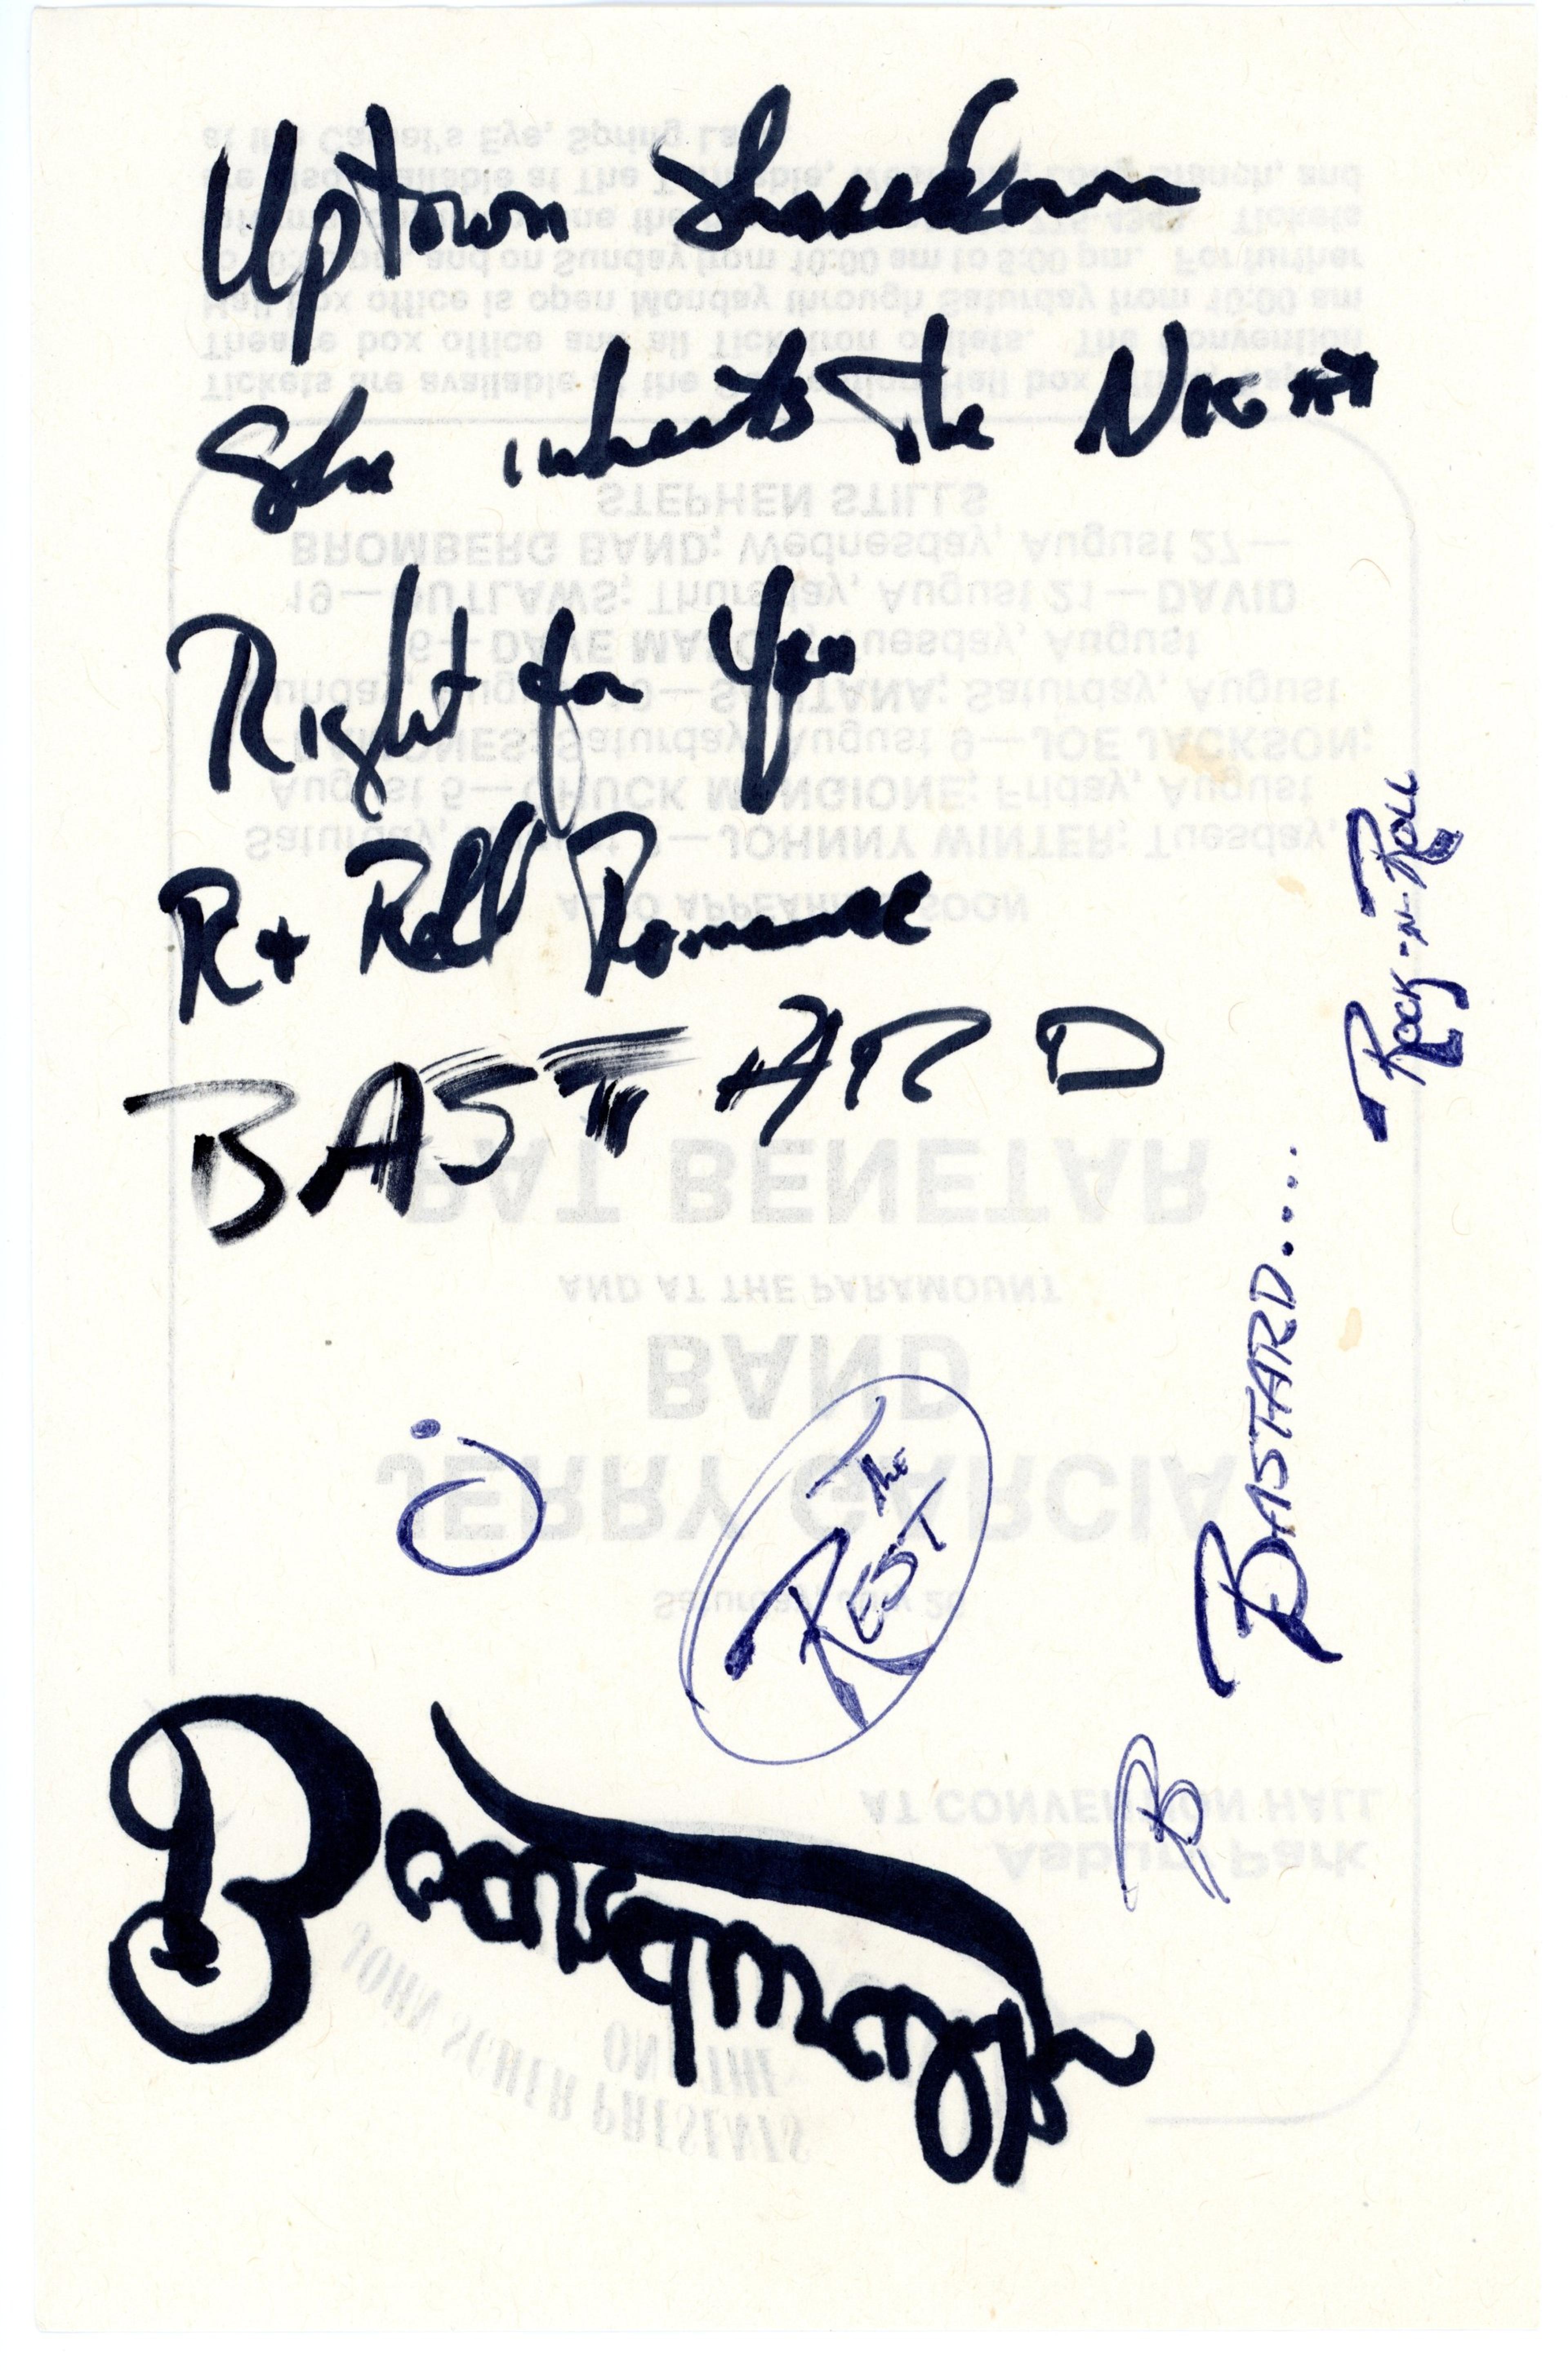 Uptown
She inherits the Night
Right for You
R + Roll Romance
BASTARD
Rock-n-Roll
BASTARD....
The
REST
B
JOHN SCHER PRESENTS
ON THE
Asbury Park
AT CONVENTION HALL
Saturday, July 26
JERRY GARCIA
BAND
AND AT THE PARAMOUNT
PAT BENETAR
ALSO APPEARING SOON
Saturday, August —JOHNNY WINTER; Tuesday,
August 5—CHUCK MANGIONE; Friday, August
RAMONES; Saturday, August 9—JOE JACKSON;
Sunday, August 10—SANTANA; Saturday, August
16—DAVE MASON; Tuesday, August
19—OUTLAWS; Thursday, August 21—DAVID
BROMBERG BAND; Wednesday, August 27—
STEPHEN STILLS
Tickets are available at the Convention Hall box office,
Theatre box office and all Ticketron outlets. The Convention
Hall box office is open Monday through Saturday from 10:00 am
pm, and on Sunday from 10:00 am to 5:00 pm. For further
the Tickets
are also available at The Long Branch, and
at the Camel's Eye, Spring Lake